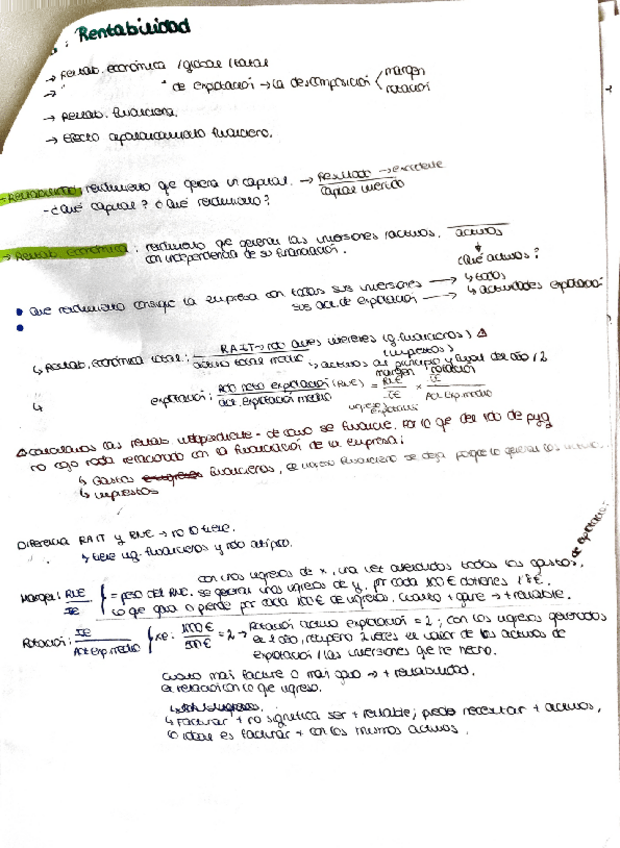 : Rentabilidad
→ Rentab. económica / global / total
→ " " de explotación → la descomposición < margen
rotación
→ Rentab. financiera.
→ Efecto apalancamiento financiero.
→ Rentabilidad: rendimiento que genera un capital. → Resultado → excedente
capital invertido
- ¿Qué capital? ¿Qué rendimiento?
→ Rentab. económica: rendimiento que generan las inversiones / activos, activos
con independencia de su financiación. ¿Qué activos?
• Que rendimiento consigue la empresa con todas sus inversiones → ↳ todos
• sus act. de explotación → ↳ actividades explotación
↳ Rentab. económica total: RAIT → rdo antes intereses (g. financieros) ⚠
activo total medio impuestos
↳ activos al principio y final del año / 2
margen rotación
↳ explotación: Rdo neto explotación (RNE) = RNE × IE
act. explotación medio IE Act Exp. medio
ingresos explotación
⚠ calculamos las rentab. independiente - de como se financie. Por lo que del rdo de pyg
no cojo nada relacionado con la financiación de la empresa:
↳ Gastos financieros, se
↳ impuestos
Diferencia RAIT y RNE → no lo tiene.
↳ tiene ing. financieros y rdo atípico.
con unos ingresos de x, una vez atendidos todos los gastos, de explotación:
Margen: RNE { = peso del RNE. se generan unos ingresos de y, por cada 100€ obtienes 18€.
IE lo que gana o pierde por cada 100€ de ingresos, cuanto + gane → + rentable.
Rotación: IE { xe: 1000€ = 2 → Rotación activo explotación = 2; con los ingresos generados
Act exp. medio 500€ en el año, recupero 2 veces el valor de los activos de
explotación / las inversiones que he hecho.
Cuanto más facture o más gano → + rentabilidad.
en relación con lo que ingreso.
↳ Facturar + no significa ser + rentable; puedo necesitar + activos,
lo ideal es facturar + con los mismos activos.